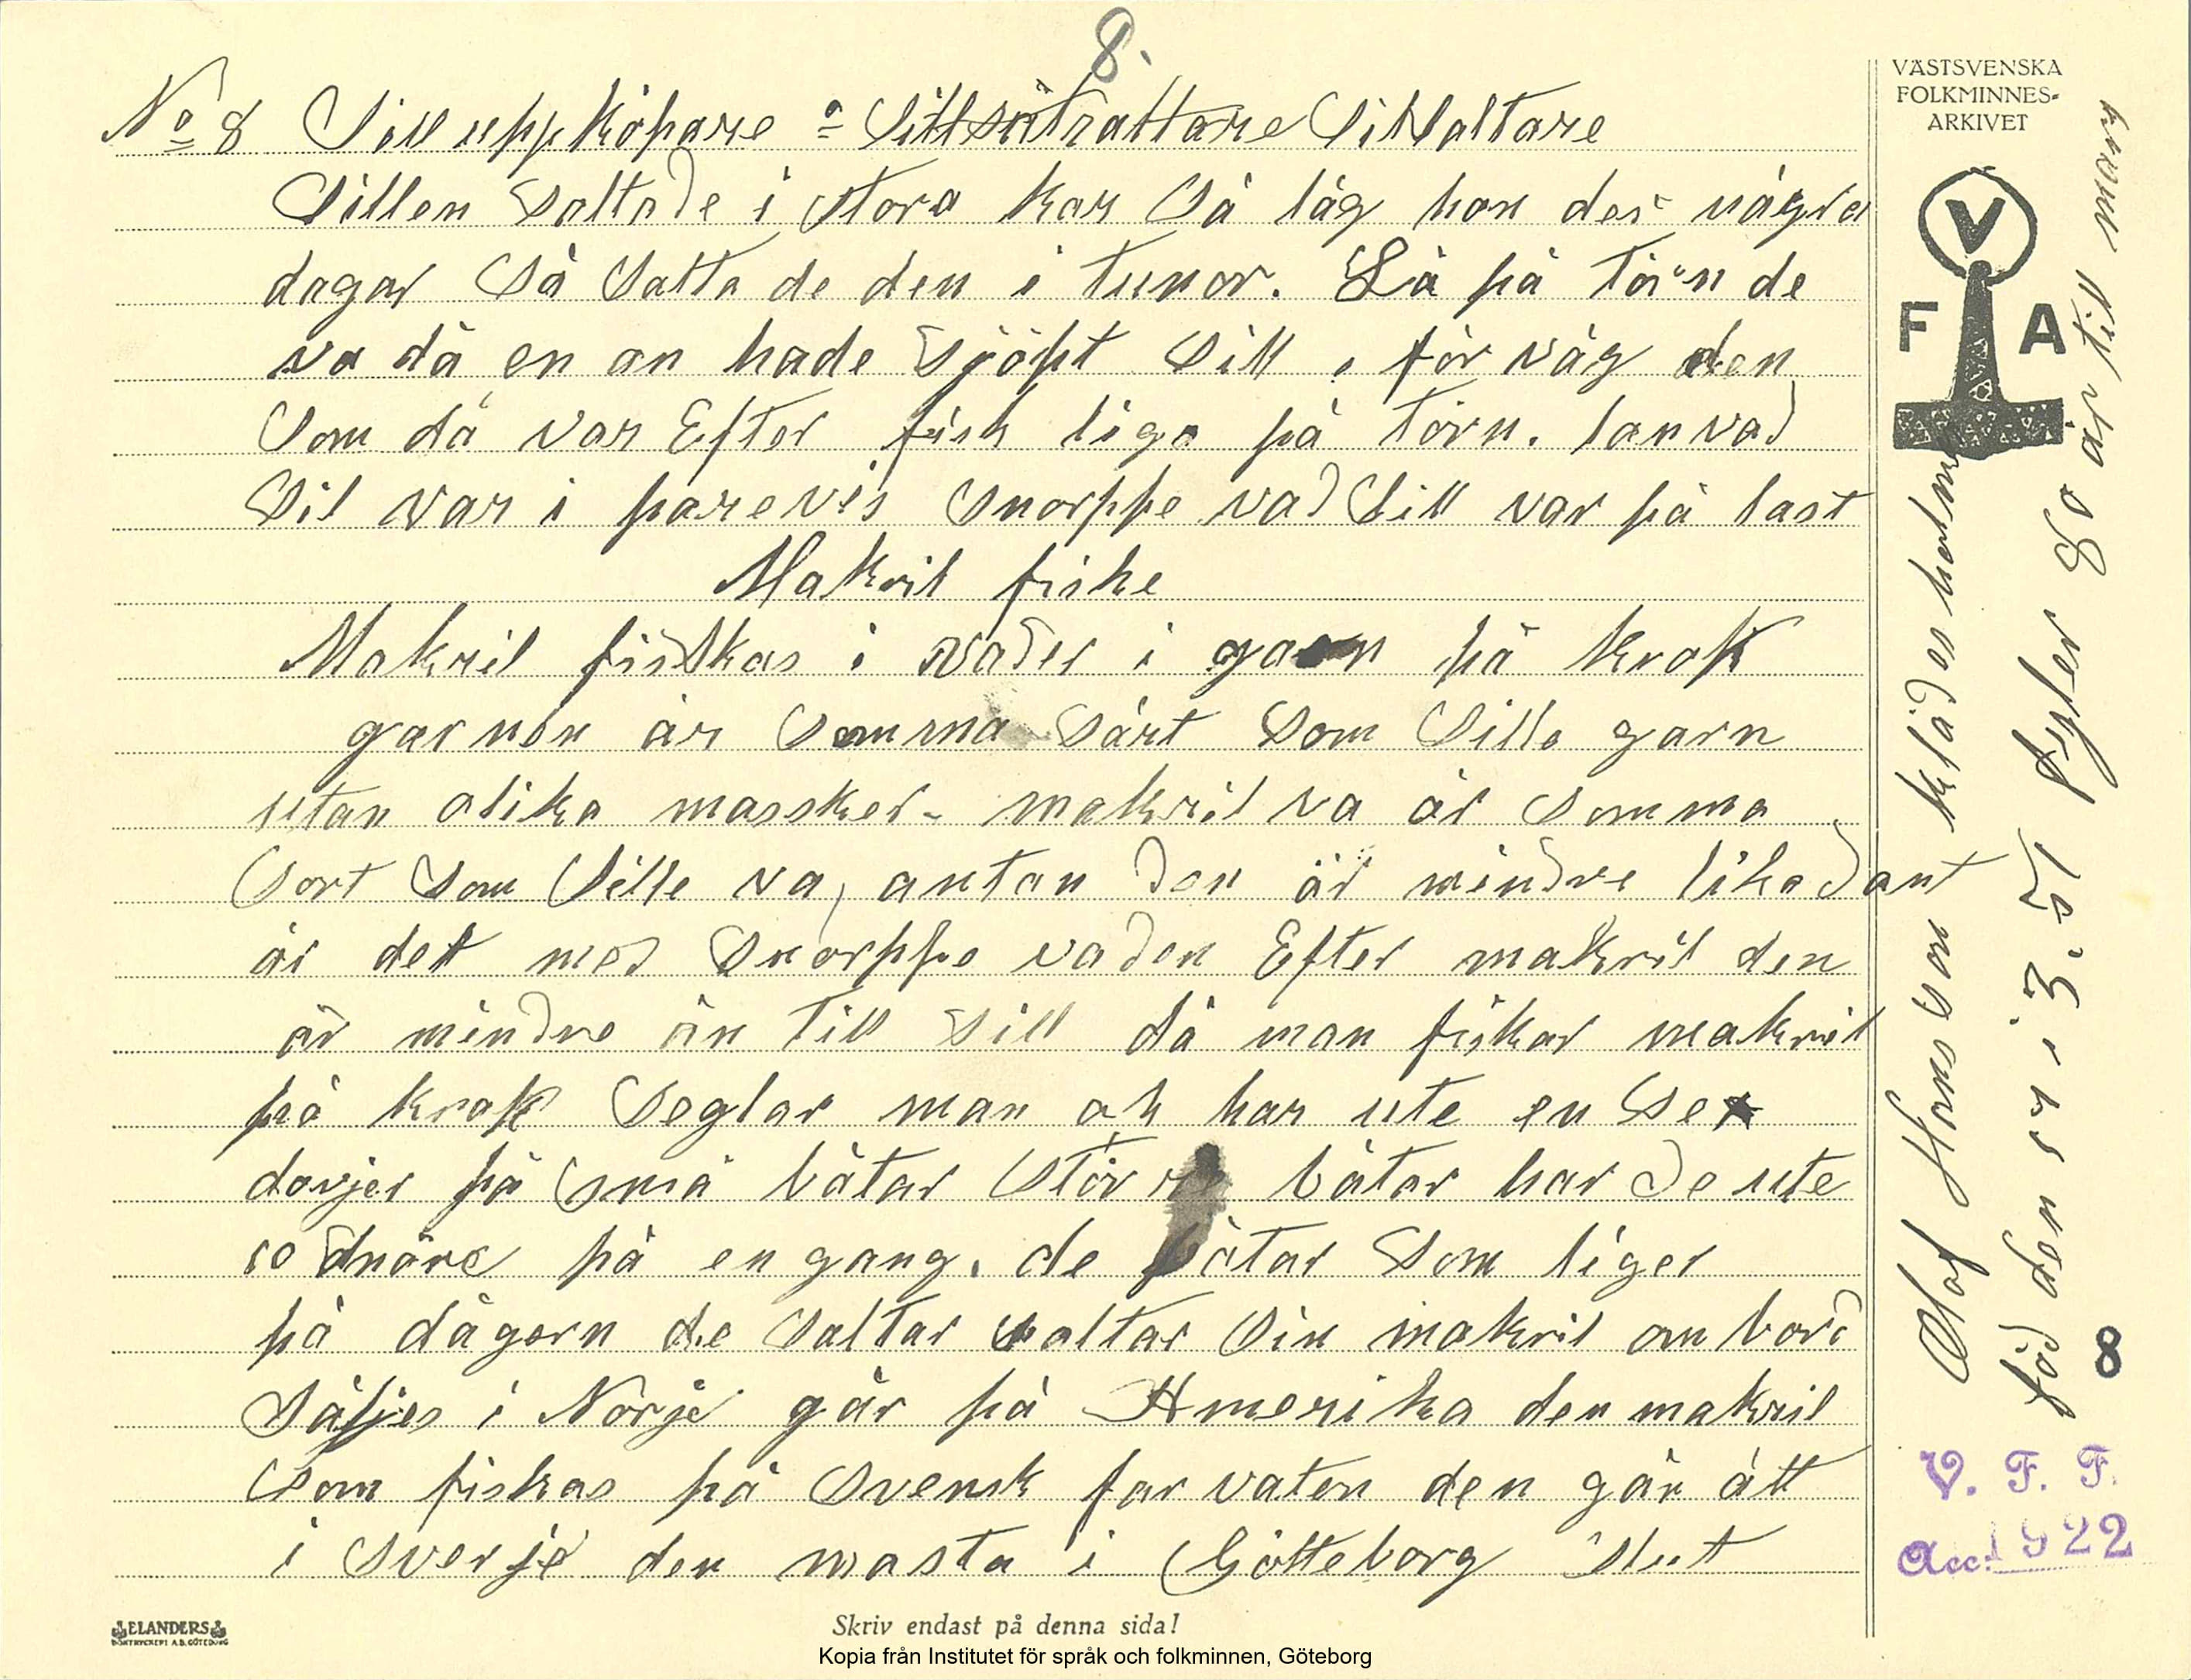 8.
No 8 Sill uppköpare o Sillsaltare
Sillen Saltade i Stora kar Så låg han der några
dagar Så Satta de den i tunor. Lå på törn de
va då en an hade Sjöpt Sill, för våg den
Som då var Efter fisk liga på törn. lanvad
Sil var i parevis Snorppe vad Sill var på last
Makril fiske
Makril fisskas i vader i garn på krok
garnen är Samma Sårt Som Sille garn
utan olika massker - makril va är Samma
Sort Som Sille va, antan den är mindre likadant
är det med Snorppe vaden Efter makril den
är mindre än till Sill då man fiskar makril
på krok Seglar man ok har ute en Sex
dorjer på Små båtar Större båtar har de ute
10 Snöre på en gang. de båtar Som liger
på dågorn de Saltar Saltar Sin makril ombord
Säljes i Norje går på Amerika den makril
Som fiskas på Svensk farvaten den går ått
i Sverje den masta i Götteborg Slut
VÄSTSVENSKA
FOLKMINNES-
ARKIVET
V
F A
Olof Hansson klädesholmen
föd den 14 i 3. 51 fyler 80 år till mars
8
V. F. F.
Acc. 1922
ELANDERS
BOKTRYCKERI A.B. GÖTEBORG
Skriv endast på denna sida!
Kopia från Institutet för språk och folkminnen, Göteborg